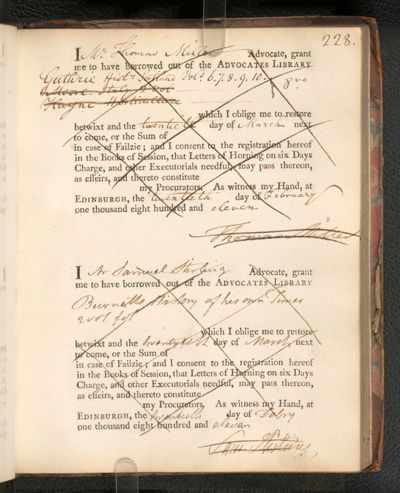 228.
I Mr Thomas Miller Advocate, grant
me to have borrowed out of the ADVOCATES LIBRARY
Guthrie Histy Vols. 6, 7. 8. 9. 10. 8vo
Moore
which I oblige me to restore
betwixt and the twentieth day of March next
to come, or the Sum of
in case of Failzie; and I consent to the registration hereof
in the Books of Session, that Letters of Horning on six Days
Charge, and other Executorials needful, may pass thereon,
as effeirs, and thereto constitute
my Procurators. As witness my Hand, at
EDINBURGH, the twentieth day of February
one thousand eight hundred and eleven
Thomas Miller
I Mr Samuel Stirling Advocate, grant
me to have borrowed out of the ADVOCATES LIBRARY
Burnett's History of his own Times
2 vols fol
which I oblige me to restore
betwixt and the twentyeth day of March next
to come, or the Sum of
in case of Failzie; and I consent to the registration hereof
in the Books of Session, that Letters of Horning on six Days
Charge, and other Executorials needful, may pass thereon,
as effeirs, and thereto constitute
my Procurators. As witness my Hand, at
EDINBURGH, the day of Febry
one thousand eight hundred and eleven
Sam Stirling